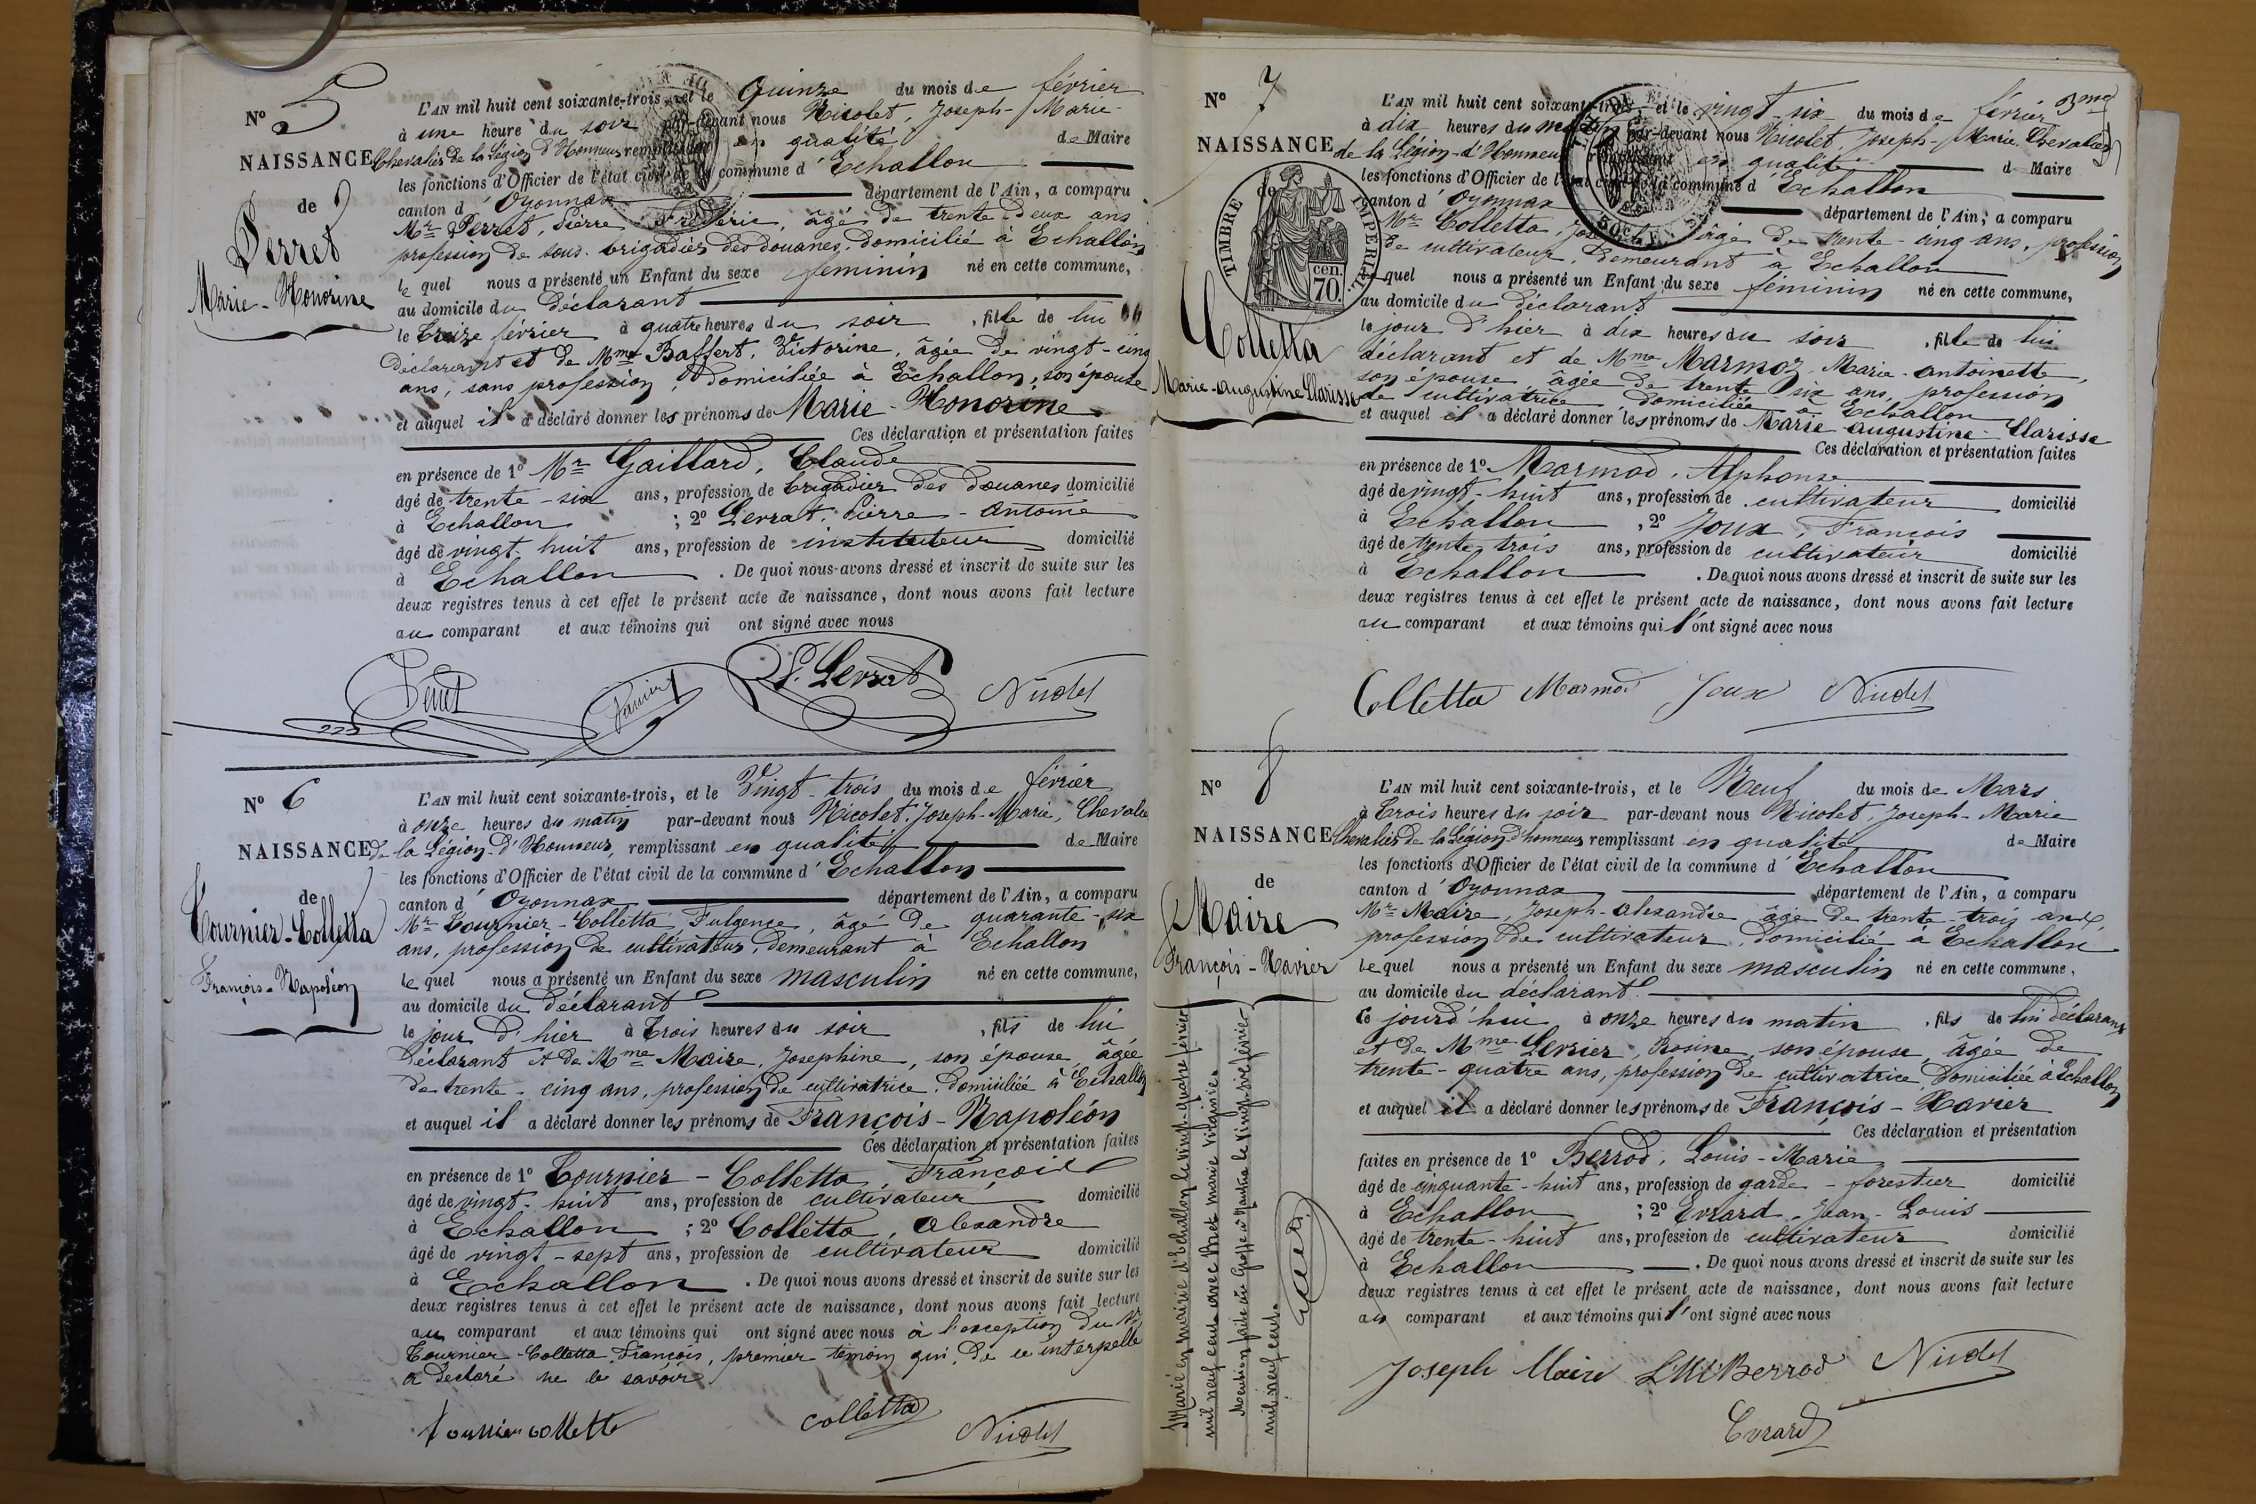 N° 5
L'AN mil huit cent soixante-trois, et le Quinze du mois de février
à une heure du soir par-devant nous Nicolet, Joseph-Marie
NAISSANCE Chevalier de la Légion d'Honneur remplissant en qualité de Maire
les fonctions d'Officier de l'état civil de la commune d'Echallon
de canton d'Oyonnax département de l'Ain, a comparu
Perret
Marie-Honorine
Mr Perret, Pierre Frédéric, âgé de trente-deux ans
profession de sous-brigadier des douanes, domicilié à Echallon
le quel nous a présenté un Enfant du sexe féminin né en cette commune,
au domicile du déclarant
le treize février à quatre heures du soir, fille de lui
déclarant et de Mme Baffert, Victorine, âgée de vingt-cinq
ans, sans profession, domiciliée à Echallon, son épouse
et auquel il a déclaré donner les prénoms de Marie-Honorine
Ces déclaration et présentation faites
en présence de 1° Mr Gaillard, Claude
âgé de trente-six ans, profession de brigadier des douanes domicilié
à Echallon ; 2° Levrat, Pierre-Antoine
âgé de vingt-huit ans, profession de instituteur domicilié
à Echallon. De quoi nous avons dressé et inscrit de suite sur les
deux registres tenus à cet effet le présent acte de naissance, dont nous avons fait lecture
au comparant et aux témoins qui ont signé avec nous
Perret P. Levrat Nicolet
N° 6
L'AN mil huit cent soixante-trois, et le Vingt-trois du mois de février
à onze heures du matin par-devant nous Nicolet, Joseph-Marie, Chevalier
NAISSANCE de la Légion-d'Honneur, remplissant en qualité de Maire
les fonctions d'Officier de l'état civil de la commune d'Echallon
de canton d'Oyonnax département de l'Ain, a comparu
Tournier-Colletta
François-Napoléon
Mr Tournier-Colletta, Fulgence, âgé de quarante-six
ans, profession de cultivateur, demeurant à Echallon
le quel nous a présenté un Enfant du sexe masculin né en cette commune,
au domicile du déclarant
le jour d'hier à trois heures du soir, fils de lui
déclarant et de Mme Maire, Josephine, son épouse, âgée
de trente-cinq ans, profession de cultivatrice, domiciliée à Echallon
et auquel il a déclaré donner les prénoms de François-Napoléon
Ces déclaration et présentation faites
en présence de 1° Tournier-Colletta, François
âgé de vingt-huit ans, profession de cultivateur domicilié
à Echallon ; 2° Colletta, Alexandre
âgé de vingt-sept ans, profession de cultivateur domicilié
à Echallon. De quoi nous avons dressé et inscrit de suite sur les
deux registres tenus à cet effet le présent acte de naissance, dont nous avons fait lecture
au comparant et aux témoins qui ont signé avec nous à l'exception du Sr
Tournier-Colletta, François, premier témoin qui, de ce interpellé
a déclaré ne le savoir
tournier collette colletta Nicolet
N° 7
3me
L'AN mil huit cent soixante-trois et le vingt-six du mois de février
à dix heures du matin par-devant nous Nicolet, Joseph-Marie, Chevalier
NAISSANCE de la Légion-d'Honneur remplissant en qualité de Maire
les fonctions d'Officier de l'état civil de la commune d'Echallon
de canton d'Oyonnax département de l'Ain, a comparu
TIMBRE IMPERIAL
cen. 70.
Colletta
Marie-Augustine Clarisse
Mr Colletta, âgé de trente-cinq ans, profession
de cultivateur, demeurant à Echallon
le quel nous a présenté un Enfant du sexe féminin né en cette commune,
au domicile du déclarant
le jour d'hier à dix heures du soir, fille de lui
déclarant et de Mme Marmoz, Marie-Antoinette,
son épouse, âgée de trente-six ans, profession
de cultivatrice domiciliée à Echallon
et auquel il a déclaré donner les prénoms de Marie Augustine-Clarisse
Ces déclaration et présentation faites
en présence de 1° Marmod, Alphonse
âgé de vingt-huit ans, profession de cultivateur domicilié
à Echallon, 2° Joux, François
âgé de trente-trois ans, profession de cultivateur domicilié
à Echallon. De quoi nous avons dressé et inscrit de suite sur les
deux registres tenus à cet effet le présent acte de naissance, dont nous avons fait lecture
au comparant et aux témoins qui l'ont signé avec nous
Colletta Marmod Joux Nicolet
N° 8
L'AN mil huit cent soixante-trois, et le Neuf du mois de Mars
à trois heures du soir par-devant nous Nicolet, Joseph-Marie
NAISSANCE Chevalier de la Légion d'honneur remplissant en qualité de Maire
les fonctions d'Officier de l'état civil de la commune d'Echallon
de canton d'Oyonnax département de l'Ain, a comparu
Maire
François-Xavier
Mr Maire, Joseph-Alexandre âgé de trente-trois ans,
profession de cultivateur, domicilié à Echallon
le quel nous a présenté un Enfant du sexe masculin né en cette commune,
au domicile du déclarant
ce jourd'hui à onze heures du matin, fils de lui déclarant
et de Mme Levrier, Rosine, son épouse, âgée de
trente-quatre ans, profession de cultivatrice, domiciliée à Echallon
et auquel il a déclaré donner les prénoms de François-Xavier
Ces déclaration et présentation
faites en présence de 1° Berrod, Louis-Marie
âgé de cinquante-huit ans, profession de garde-forestier domicilié
à Echallon ; 2° Evrard, Jean-Louis
âgé de trente-huit ans, profession de cultivateur domicilié
à Echallon. De quoi nous avons dressé et inscrit de suite sur les
deux registres tenus à cet effet le présent acte de naissance, dont nous avons fait lecture
au comparant et aux témoins qui l'ont signé avec nous
Joseph Maire L M Berrod Nicolet
Evrard
Marié en mairie d'Echallon le vingt-quatre février
mil neuf cent avec Marie Virginie.
Mention faite au Greffe à Nantua le vingt-six février
mil neuf cent.